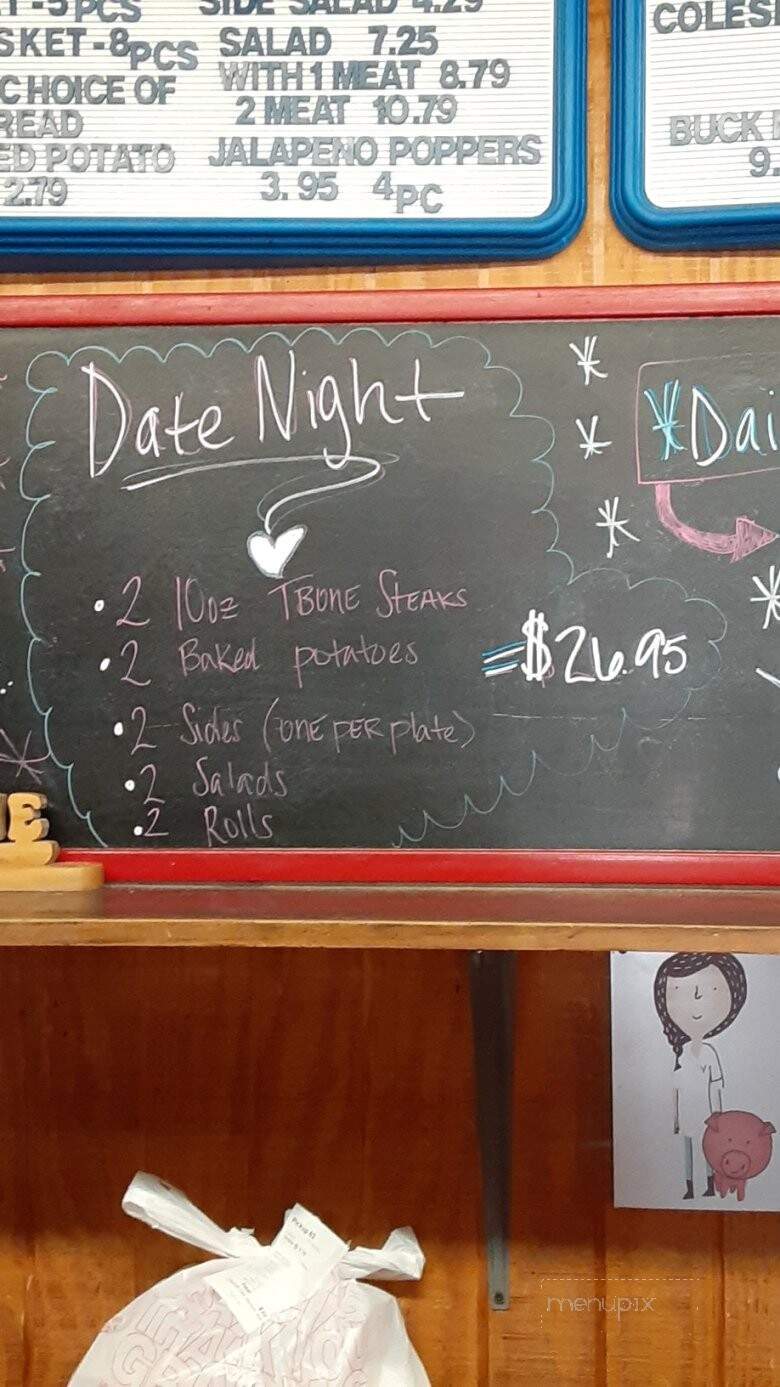 -5PCS
SKET-8PCS
CHOICE OF
READ
ED POTATO
2.79
SIDE SALAD 4.29
SALAD 7.25
WITH 1 MEAT 8.79
2 MEAT 10.79
JALAPENO POPPERS
3.95 4PC
COLES
BUCK
9.
Date Night
• 2 10oz TBONE STEAKS
• 2 Baked potatoes
• 2 Sides (one per plate)
• 2 Salads
• 2 Rolls
=$26.95
*Dai
E
menupix